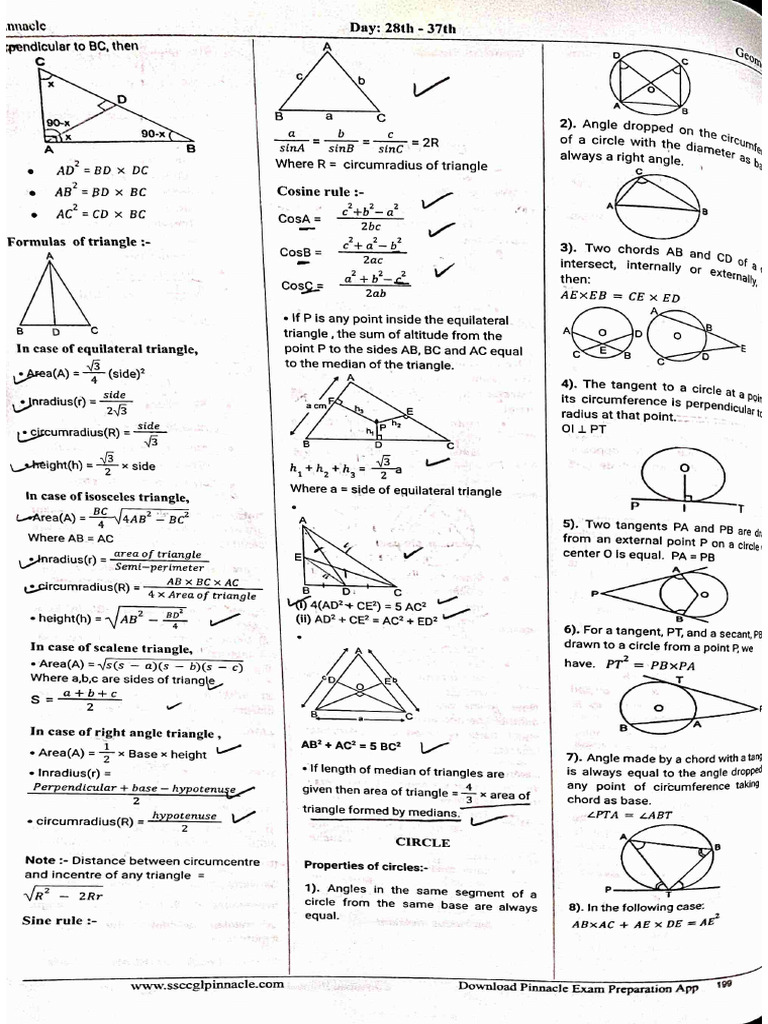 nnacle
Day: 28th - 37th
Geom
pendicular to BC, then
C
x
D
90-x
x
90-x
A
B
• AD² = BD × DC
• AB² = BD × BC
• AC² = CD × BC
Formulas of triangle :-
A
B D C
In case of equilateral triangle,
• Area(A) = √3/4 (side)²
• Inradius(r) = side/2√3
• circumradius(R) = side/√3
• height(h) = √3/2 × side
In case of isosceles triangle,
• Area(A) = BC/4 √4AB² − BC²
Where AB = AC
• Inradius(r) = area of triangle/Semi−perimeter
• circumradius(R) = AB × BC × AC/4 × Area of triangle
• height(h) = √AB² − BD²/4
In case of scalene triangle,
• Area(A) = √s(s − a)(s − b)(s − c)
Where a,b,c are sides of triangle
S = a + b + c/2
In case of right angle triangle ,
• Area(A) = 1/2 × Base × height
• Inradius(r) =
Perpendicular + base − hypotenuse/2
• circumradius(R) = hypotenuse/2
Note :- Distance between circumcentre
and incentre of any triangle =
√R² − 2Rr
Sine rule :-
A
c b
B a C
a/sinA = b/sinB = c/sinC = 2R
Where R = circumradius of triangle
Cosine rule :-
CosA = c²+b²−a²/2bc
CosB = c²+a²−b²/2ac
CosC = a²+b²−c²/2ab
• If P is any point inside the equilateral
triangle , the sum of altitude from the
point P to the sides AB, BC and AC equal
to the median of the triangle.
A
a cm F h₃ E
P h₂
h₁
B D C
h₁ + h₂ + h₃ = √3/2 a
Where a = side of equilateral triangle
•
A
E
B D C
(i) 4(AD² + CE²) = 5 AC²
(ii) AD² + CE² = AC² + ED²
•
A
c D E b
O
B a C
AB² + AC² = 5 BC²
• If length of median of triangles are
given then area of triangle = 4/3 × area of
triangle formed by medians.
CIRCLE
Properties of circles:-
1). Angles in the same segment of a
circle from the same base are always
equal.
D C
O
A B
2). Angle dropped on the
of a circle with the diameter as
always a right angle.
C
A B
3). Two chords AB and CD of a
intersect, internally or externally,
then:
AE×EB = CE × ED
A O D
C E B
A
O B
C D E
4). The tangent to a circle at a
Its circumference is perpendicular to
radius at that point.
OI ⊥ PT
O
P I T
5). Two tangents PA and PB are
from an external point P on a circle
center O is equal. PA = PB
A
P O
B
6). For a tangent, PT, and a secant, PB
drawn to a circle from a point P, we
have. PT² = PB×PA
T
O
B A
7). Angle made by a chord with a
is always equal to the angle dropped
any point of circumference taking
chord as base.
∠PTA = ∠ABT
A B
P T
8). In the following case:
AB×AC + AE × DE = AE²
www.ssccglpinnacle.com
Download Pinnacle Exam Preparation App
199